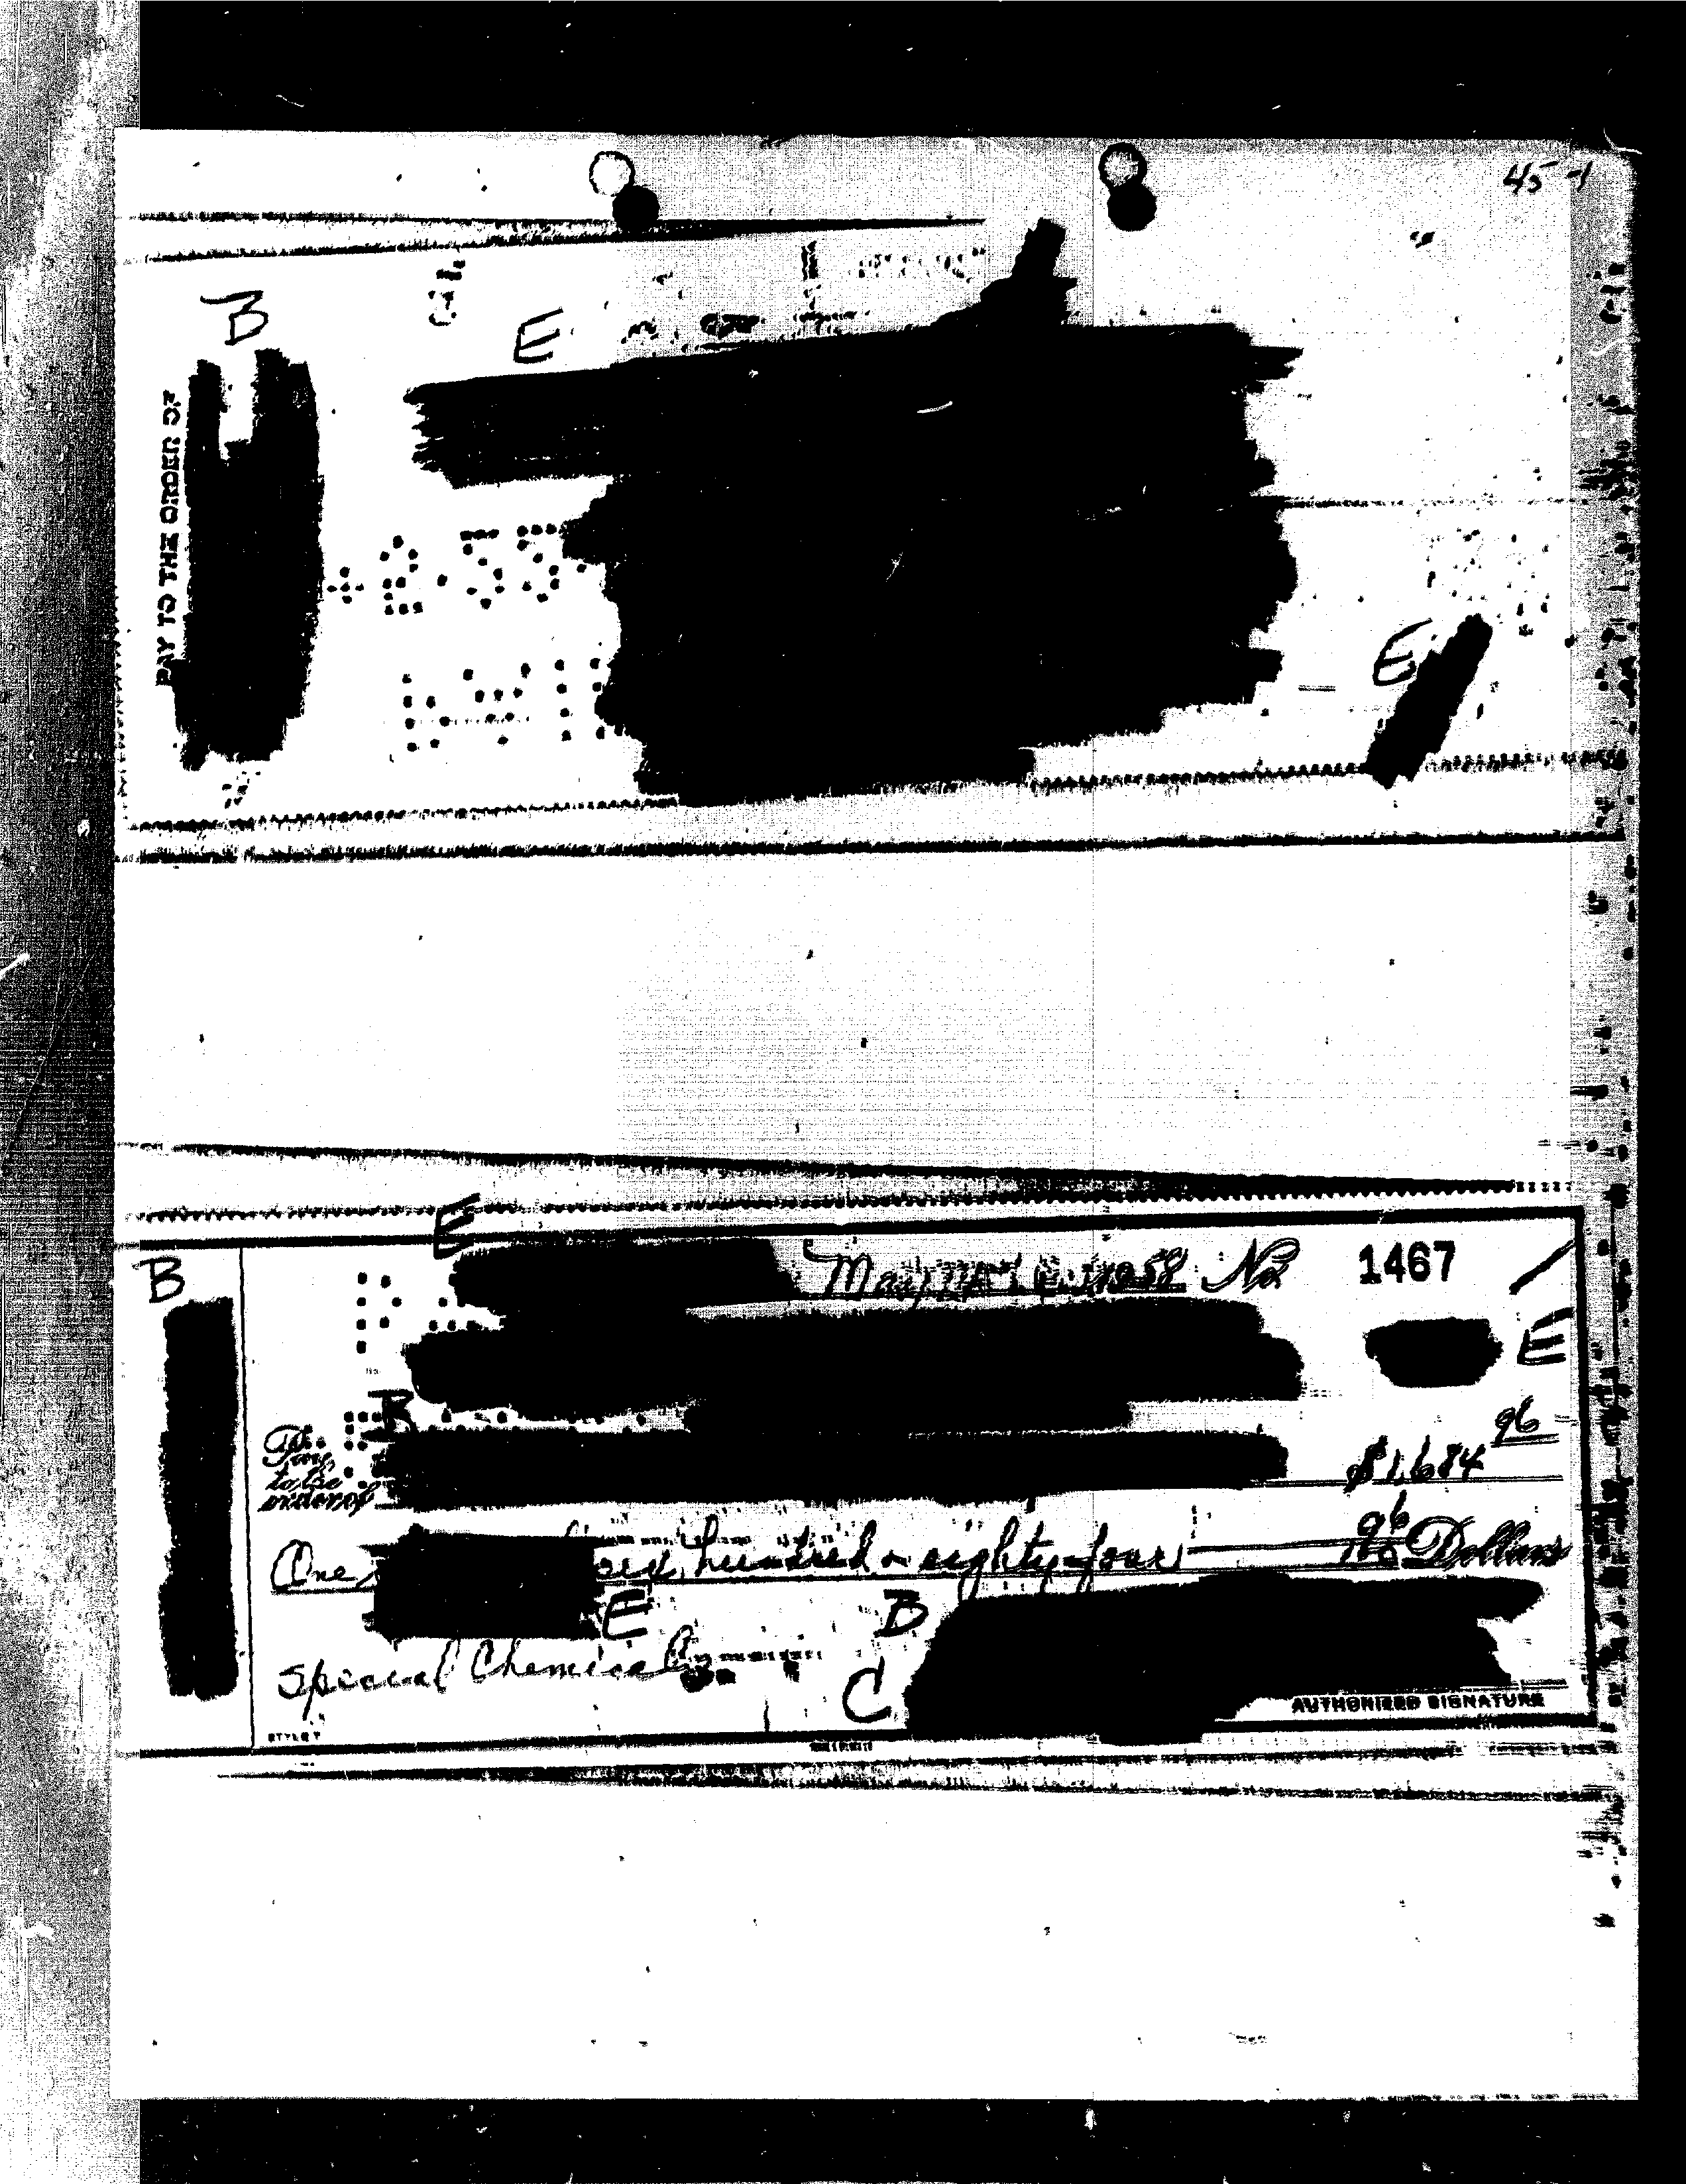 45-1
B
E
PAY TO THE ORDER OF
E
E
B
May 1958 No. 1467
E
B
Pay to the order of $1,684 96
One hundred & eighty-four 96/100 Dollars
E
B
Special Chemical
C
AUTHORIZED SIGNATURE
STYLE T